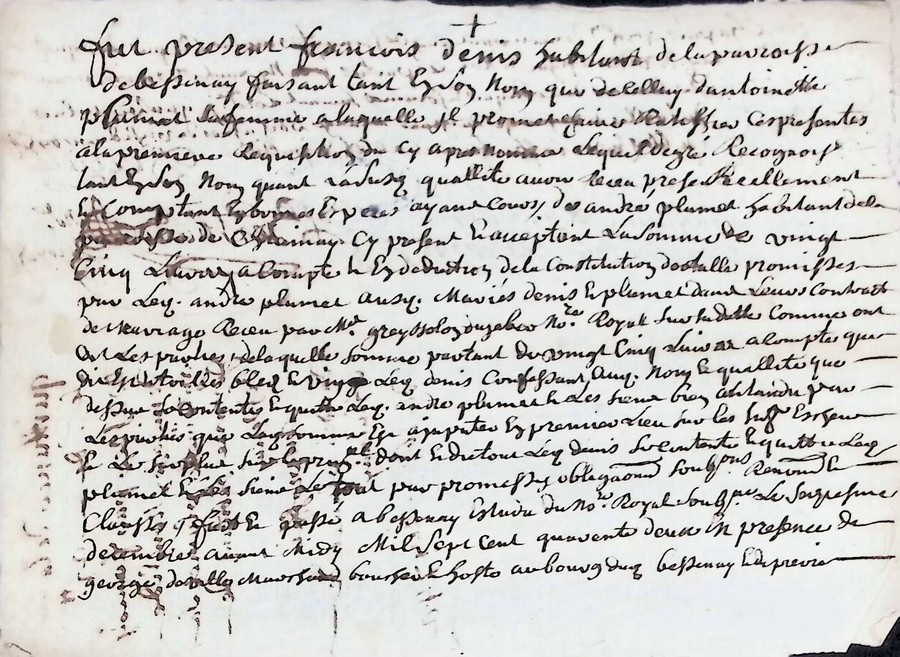 fut present françois denis habitant de la parroisse
de bessenay faisant tant En son Nom que de celluy dantoinette
sa femme a laquelle Il promet faire Ratiffier Ces presentes
a la premiere Requisition du Cy apres nommé Lequel de gré Recognoist
tant En son Nom quant a la susq. quallité avoir Receu presen Reellement
Et Comptant En bonnes Especes ayant Cours des andré plumet habitant de la
parroisse de Cy present Et acceptant La somme de vingt
Cinq Livres a Compte Et En deduction de la Constitution dotalle promisses
par Leq. andré plumet ausq. Mariés denis Et plumet dans Leurs Contract
de Mariage Receu par Me. Nore. Royal sur sa datte Comme ont
dit Les parties, de laquelle somme partant de vingt Cinq Livres a Compte que
Leq denis Confessant auq. Nom Et quallité que
dessus se contente Et quitte Leq. andré plumet Et Les siens bien Entandu par
Les parties que Laq somme Est a Imputer En premier Lieu sur Les
Et Le surplus sur Le prin.al dont Et de tout Leq denis se contente Et quitte Leq
plumet Et Les siens Le tout par promesses obligaons soubmons Renons Et
Clauses fait Et passé a bessenay Estude du Nore. Royal soubne Le
decembre avant Midy Mil sept cent quarente deux En presence de
george deville Marchand boucher Et hoste au bourg dud bessenay Et de